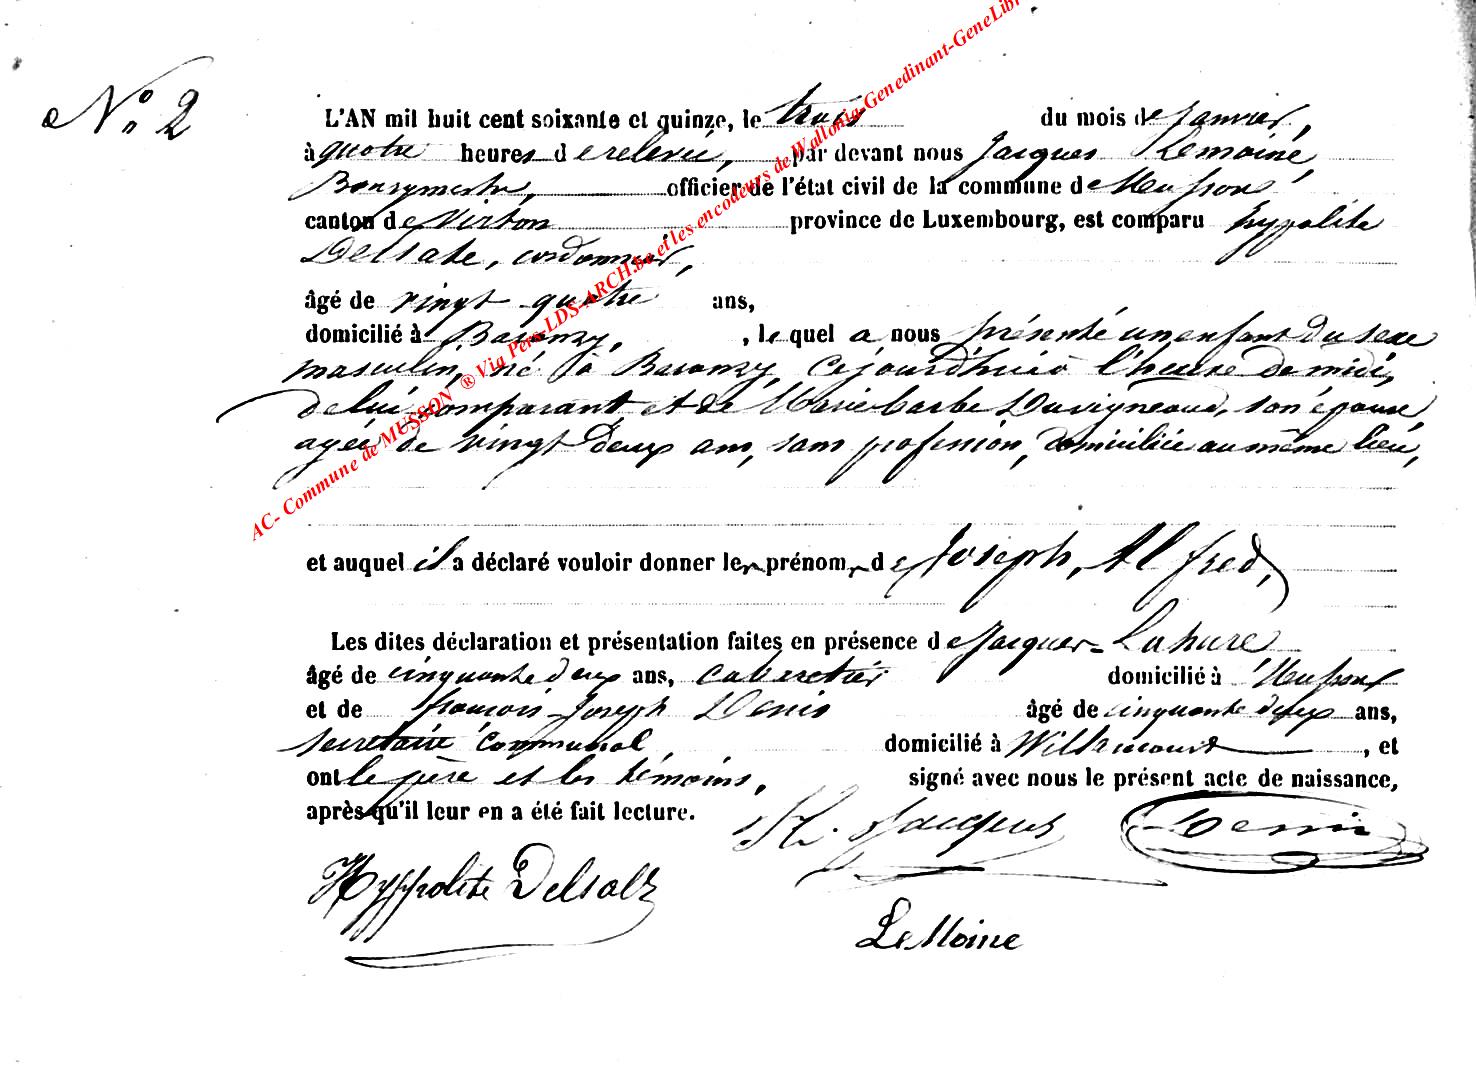 N° 2
L'AN mil huit cent soixante et quinze, le trois du mois de Janvier,
à quatre heures de relevée, par devant nous Jacques Lemoine,
Bourgmestre, officier de l'état civil de la commune de Musson
canton de Virton province de Luxembourg, est comparu hyppolite
Delsate, cordonnier,
âgé de vingt quatre ans,
domicilié à Baranzy, , lequel a nous présenté un enfant du sexe
masculin, né à Baranzy, cejourd'hui à l'heure de midi,
de lui comparant et de Marie barbe Duvigneaud, son épouse,
agée de vingt deux ans, sans profession, domiciliée au même lieu,
et auquel il a déclaré vouloir donner les prénoms de Joseph, Alfred,
Les dites déclaration et présentation faites en présence de Jacques Lahure
âgé de cinquante deux ans, cabaretier domicilié à Musson
et de françois-Joseph Denis âgé de cinquante deux ans,
secrétaire communal, domicilié à Willancourt , et
ont le père et les témoins, signé avec nous le présent acte de naissance,
après qu'il leur en a été fait lecture.
Jacques
Denis
Hyppolite Delsate
LeMoine
AC- Commune de MUSSON ® Via Pers-LDS-ARCH.be et les encodeurs de Wallonia-Genedinant-GeneLib